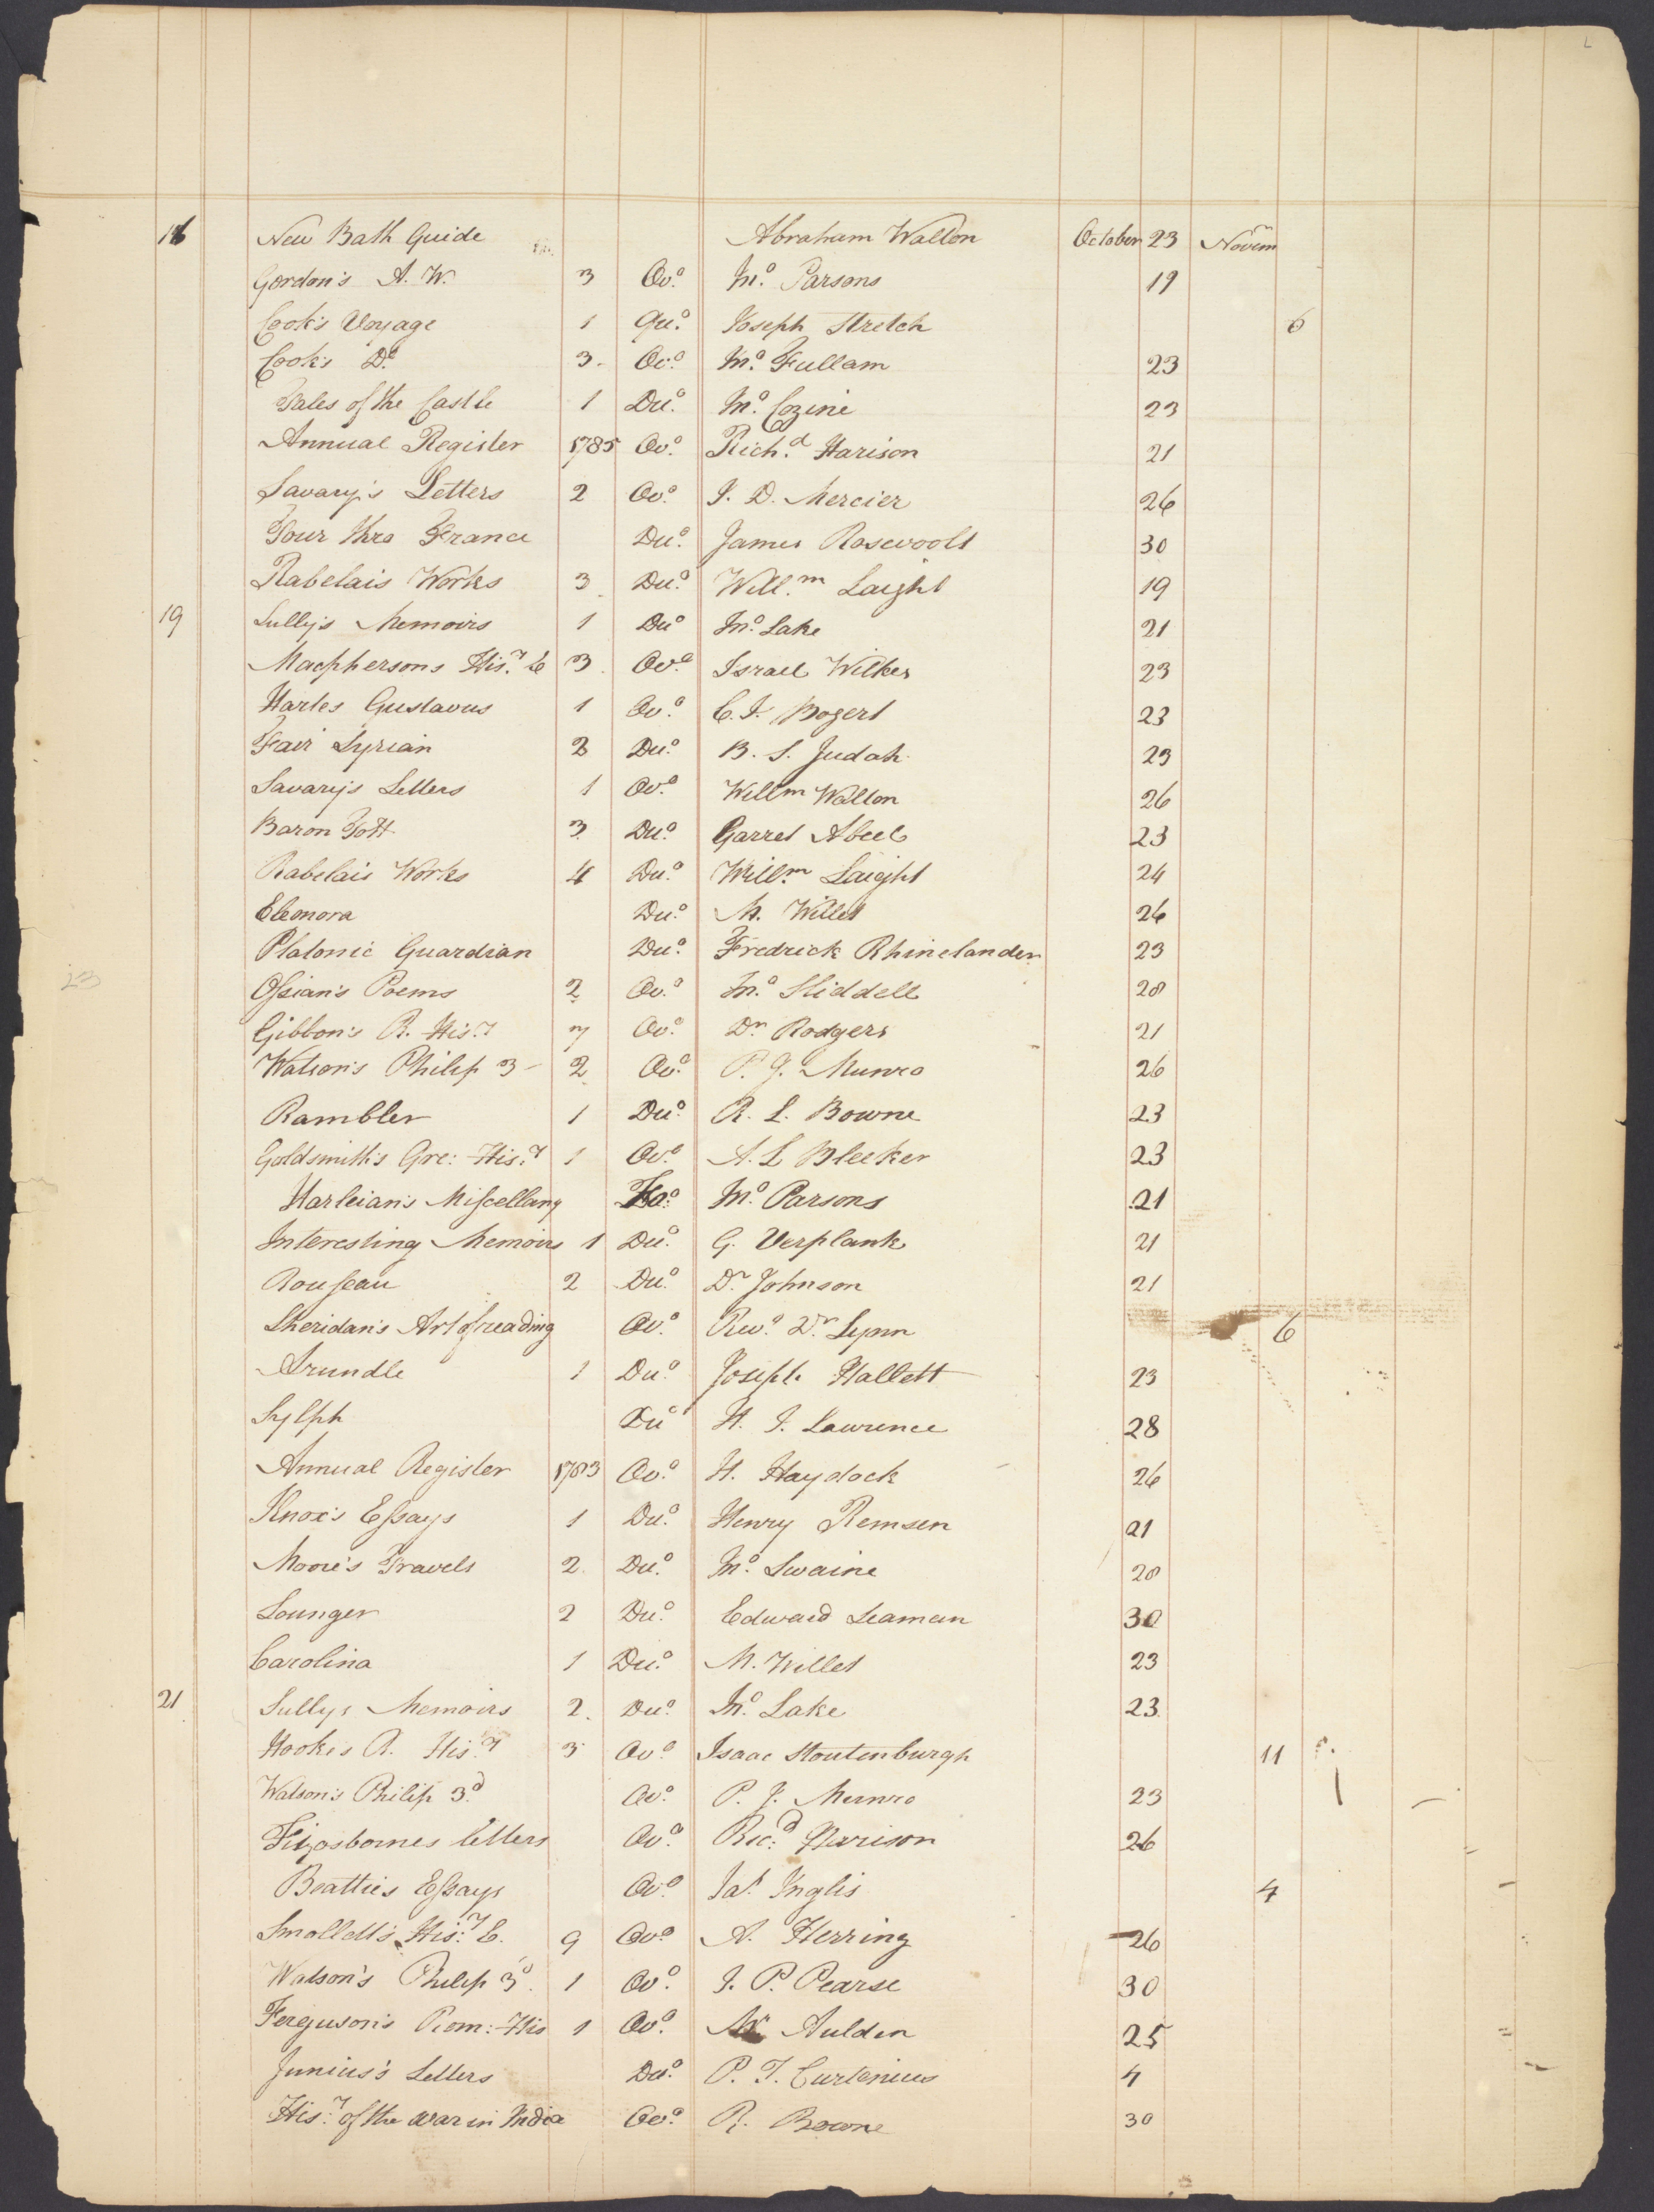 L
16 New Bath Guide Abraham Walton October 23 Novem
Gordon's A. W. 3 Ov.o Jno. Parsons 19
Cook's Voyage 1 Qu.o Joseph Stretch 6
Cook's Do. 3 Ov.o Jno. Fullam 23
Tales of the Castle 1 Du.o Jno. Cozine 23
Annual Register 1785 Ov.o Rich.d Harison 21
Savary's Letters 2 Ov.o J. D. Mercier 26
Tour thro France Du.o James Rosevoolt 30
Rabelais Works 3 Du.o Will.m Laight 19
19 Sully's Memoirs 1 Duo Jno. Lake 21
Macphersons His.y E 3 Ov.o Israel Wilkes 23
Hartes Gustavus 1 Ov.o C. J. Bogert 23
Fair Syrian 2 Du.o B. S. Judah 23
Savary's Letters 1 Ov.o Willm Walton 26
Baron Tott 3 Du.o Garret Abeel 23
Rabelais Works 4 Du.o Will.m Laight 24
Eleonora Du.o M. Willet 26
Platonic Guardian Du.o Fredrick Rhinelander 23
23 Ossian's Poems 2 Ov.o Jn.o Sliddell 28
Gibbon's R. His.y 7 Ov.o Dr Rodgers 21
Watson's Philip 3 2 Ov.o P. J. Munro 26
Rambler 1 Du.o R. L. Bowne 23
Goldsmith's Gre: His.y 1 Ov.o A. L Bleeker 23
Harleian's Miscellany Fo.o Jno. Parsons 21
Interesting Memoirs 1 Du.o G. Verplank 21
Rousseau 2 Du.o Dr Johnson 21
Sheridan's Art of reading Ov.o Rev.d Dr Lynn 6
Arundle 1 Du.o Joseph Hallett 23
Sylph Duo H. J. Lawrence 28
Annual Register 1783 Ov.o H. Haydock 26
Knox's Essays 1 Du.o Henry Remsen 21
Moore's Travels 2 Du.o Jno. Swaine 28
Lounger 2 Du.o Edward Leaman 30
Carolina 1 Du.o M. Willet 23
21 Sullys Memoirs 2 Du.o Jno. Lake 23
Hookes R. His.y 3 Ov.o Isaac Stoutenburgh 11
Watson's Philip 3d Ov.o P. J. Munro 23
Fizosbornes letters Ov.o Ric.d Harison 26
Beatties Essays Ov.o Jas. Inglis 4
Smollett's His.y E. 9 Ov.o A. Herring 26
Watson's Philip 3d 1 Ov.o J. P. Pearse 30
Ferguson's Rom: His 1 Ov.o Mr Aulden 25
Junius's Letters Du.o P. T. Curtenius 4
His.y of the war in India Ov.o R. Bowne 30